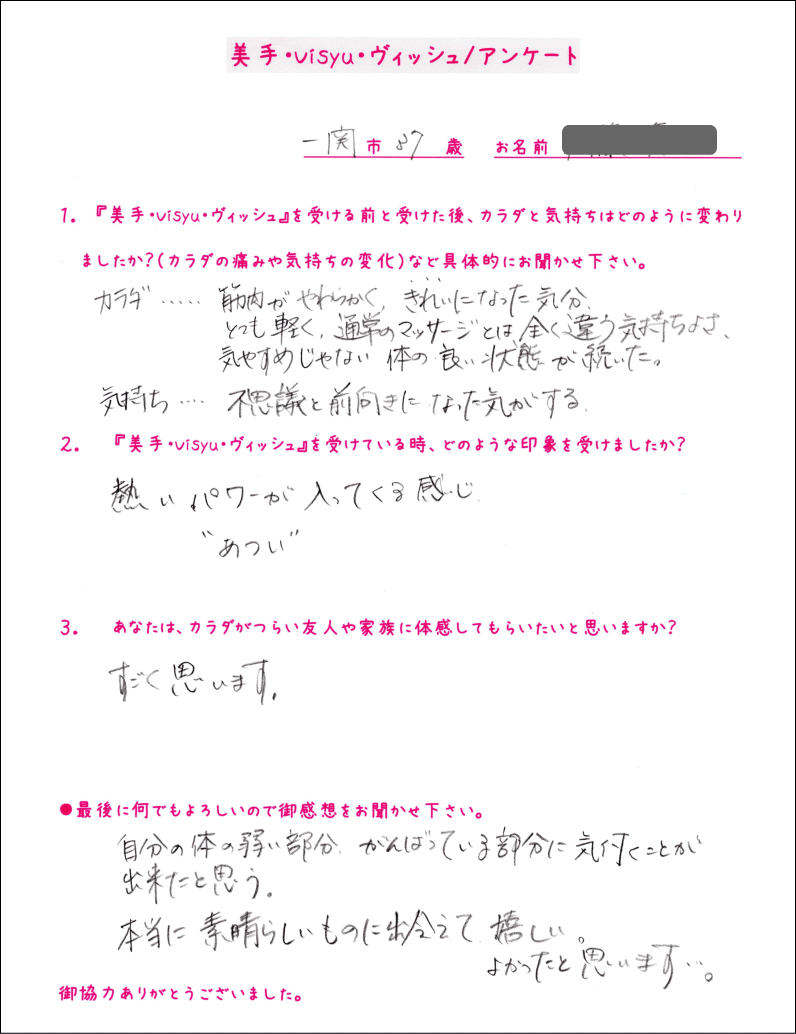 美手・visyu・ヴィッシュ/アンケート
一関市 37歳 お名前
1. 『美手・visyu・ヴィッシュ』を受ける前と受けた後、カラダと気持ちはどのように変わり
ましたか?(カラダの痛みや気持ちの変化)など具体的にお聞かせ下さい。
カラダ…… 筋肉がやわらかく、きれいになった気分、
とても軽く、通常のマッサージとは全く違う気持ちよさ、
気やすめじゃない体の良い状態が続いた。
気持ち…… 不思議と前向きになった気がする。
2. 『美手・visyu・ヴィッシュ』を受けている時、どのような印象を受けましたか?
熱いパワーが入ってくる感じ
“あつい”
3. あなたは、カラダがつらい友人や家族に体感してもらいたいと思いますか?
すごく思います。
●最後に何でもよろしいので御感想をお聞かせ下さい。
自分の体の弱い部分、がんばっている部分に気付くことが
出来たと思う。
本当に素晴らしいものに出会えて嬉しい。
よかったと思います…。
御協力ありがとうございました。